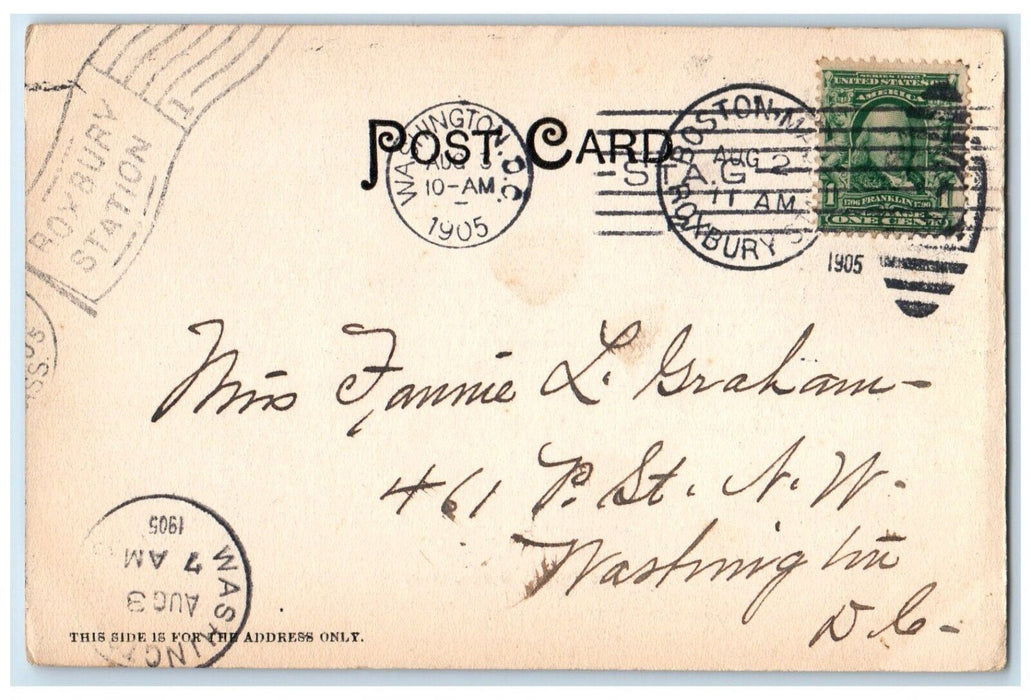 ROXBURY
STATION
1
POST CARD
WASHINGTON, D.C.
AUG 3
10-AM
1905
BOSTON, MA
AUG 2
11 AM
ROXBURY STA.
-STA.G-
1905
SERIES 1902
UNITED STATES OF
AMERICA
1706 FRANKLIN 1790
1 ONE CENT 1
Miss Fannie L. Graham-
461 P. St. N. W.
Washington
D C-
WASHINGT
AUG 3
7 AM
1905
THIS SIDE IS FOR THE ADDRESS ONLY.